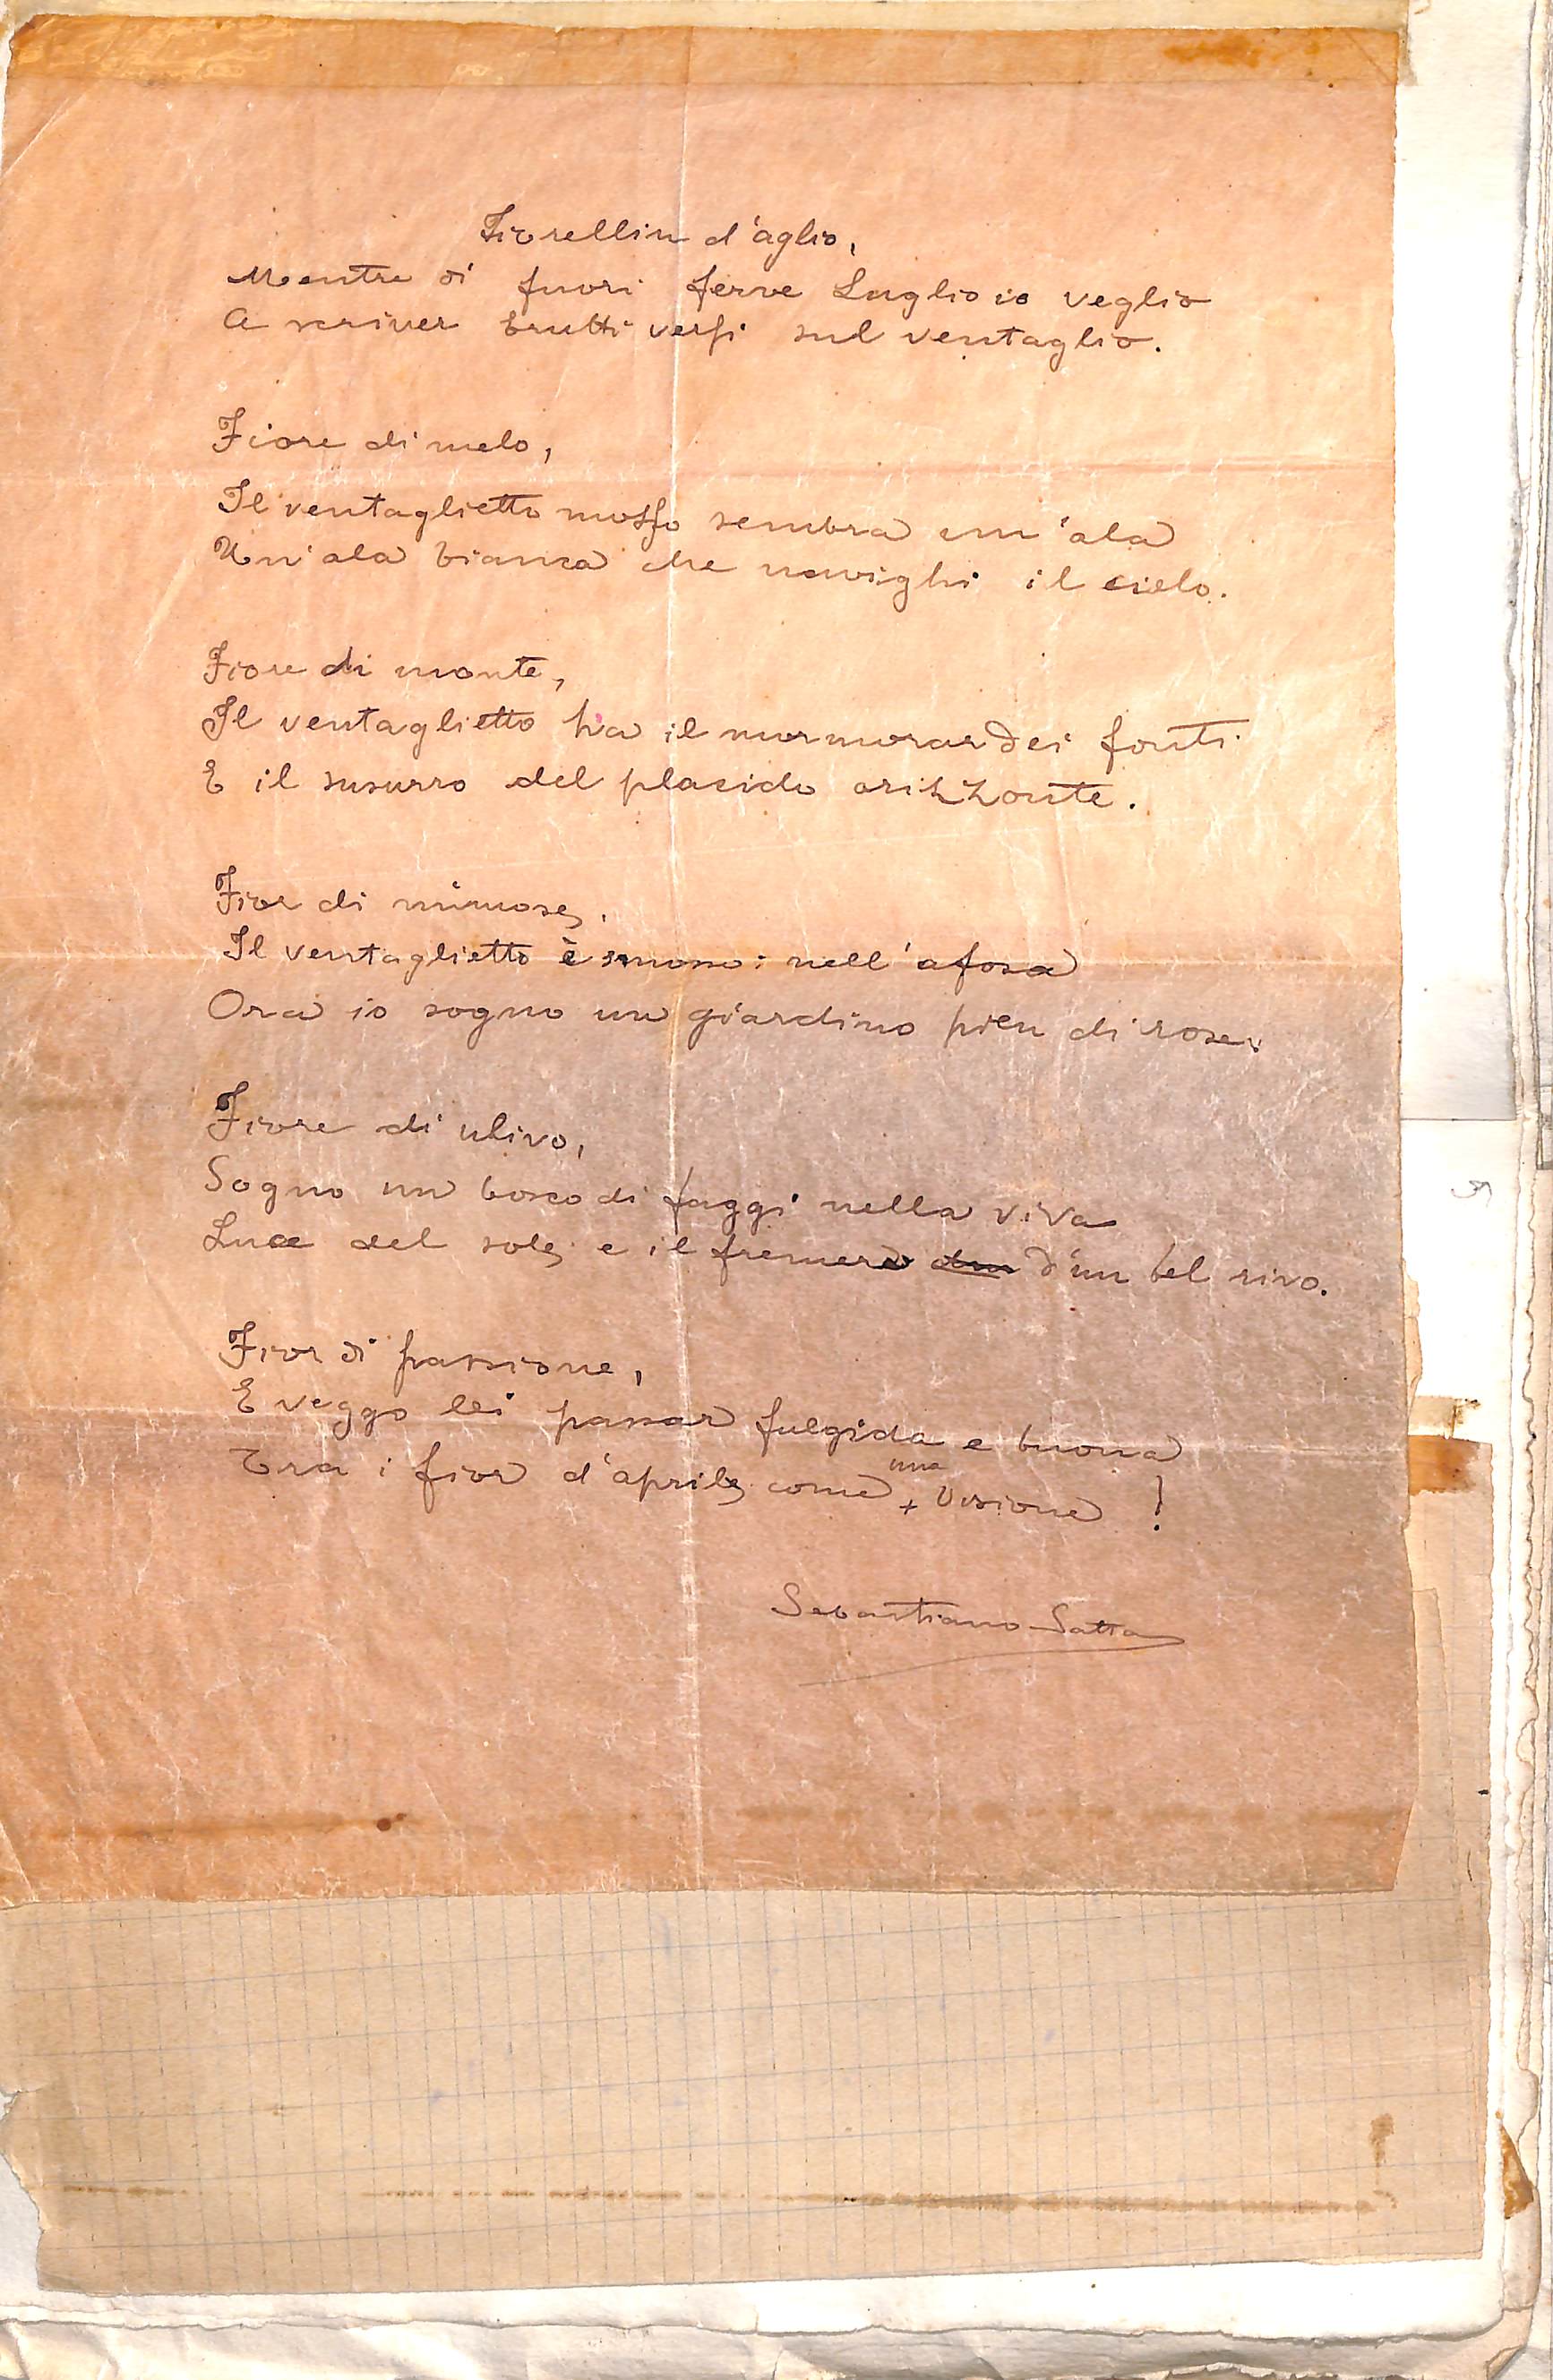 Fiorellin d'aglio,
Mentre di fuori ferve Luglio io veglio
A scriver brutti versi sul ventaglio.
Fiore di melo,
Il ventaglietto mosso sembra un'ala
Un'ala bianca che navighi il cielo.
Fiore di monte,
Il ventaglietto ha il mormorar dei fonti
E il susurro del placido orizzonte.
Fior di mimose,
Il ventaglietto è smosso: nell'afosa
Ora io sogno un giardino pien di rose.
Fiore di ulivo,
Sogno un bosco di faggi nella viva
Luce del sole, e il fremere d'un bel rivo.
Fior di passione,
E veggo lei passar fulgida e buona
Tra i fior d'aprile, come una visione!
Sebastiano Satta